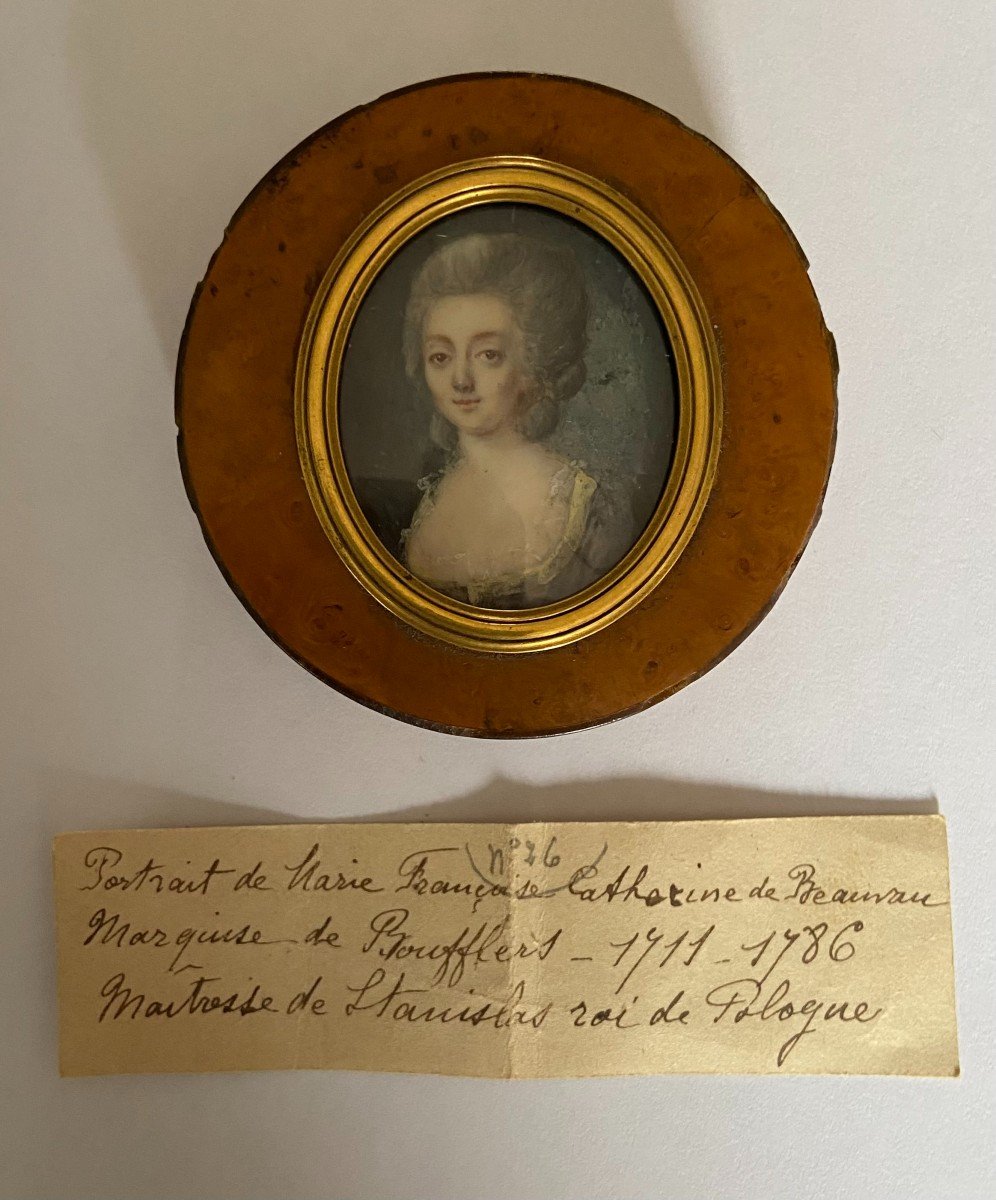 (N° 26)
Portrait de Marie Françoise Catherine de Beauvau
Marquise de Boufflers - 1711 - 1786
Maitresse de Stanislas roi de Pologne